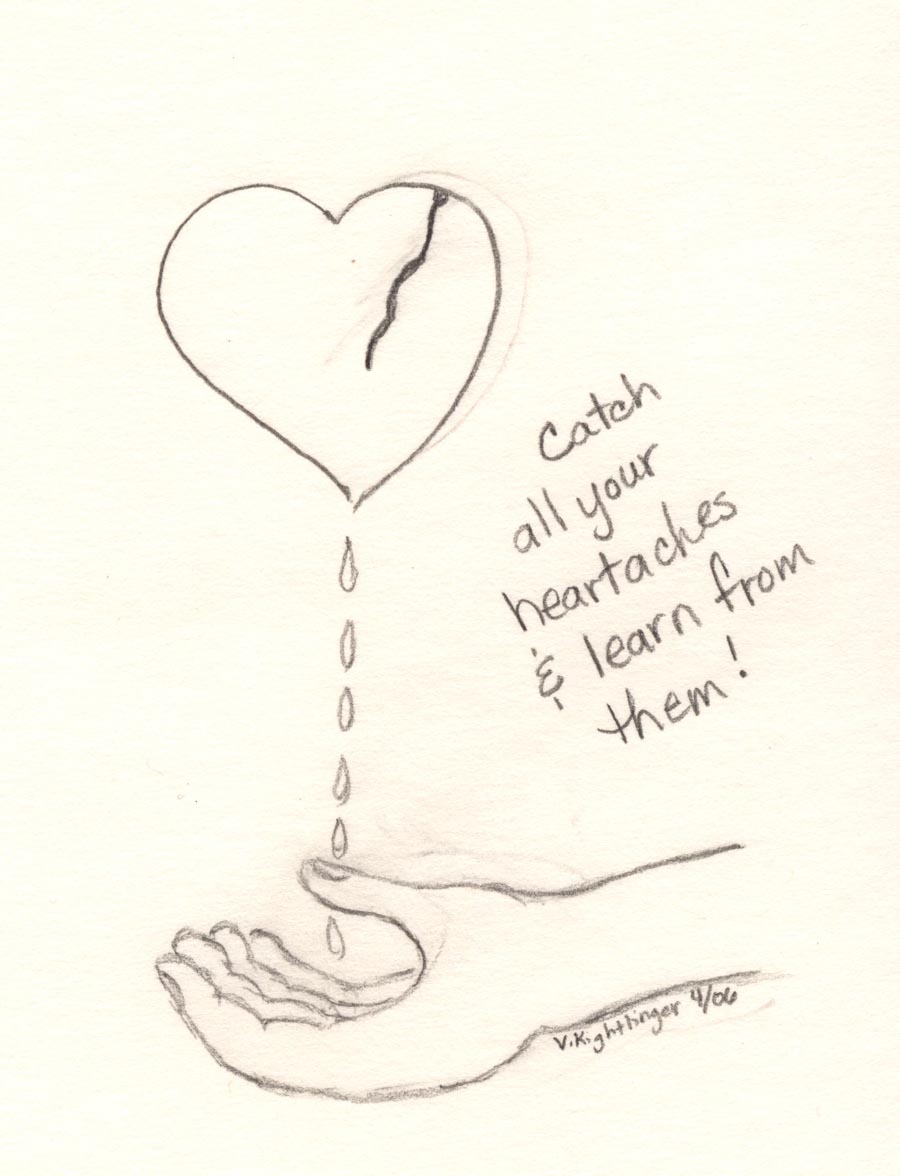 Catch
all your
heartaches
& learn from
them!
V. Kightlinger 4/06